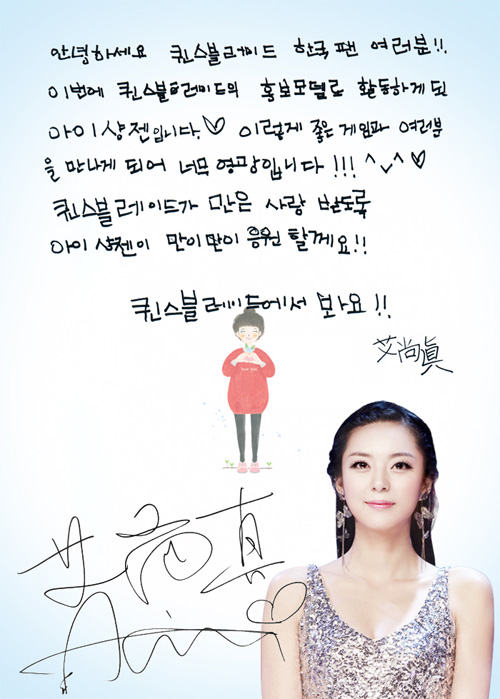 안녕하세요 퀸스블레이드 한국 팬 여러분!!
이번에 퀸스블레이드의 홍보모델로 활동하게 된
아이샹젠입니다.♡ 이렇게 좋은 게임과 여러분
을 만나게 되어 너무 영광입니다!!! ^^♡
퀸스블레이드가 만은 사랑 받도록
아이샹젠이 만이만이 응원 할께요!!
퀸스블레이드에서 봐요!!
艾尚真
艾尚真